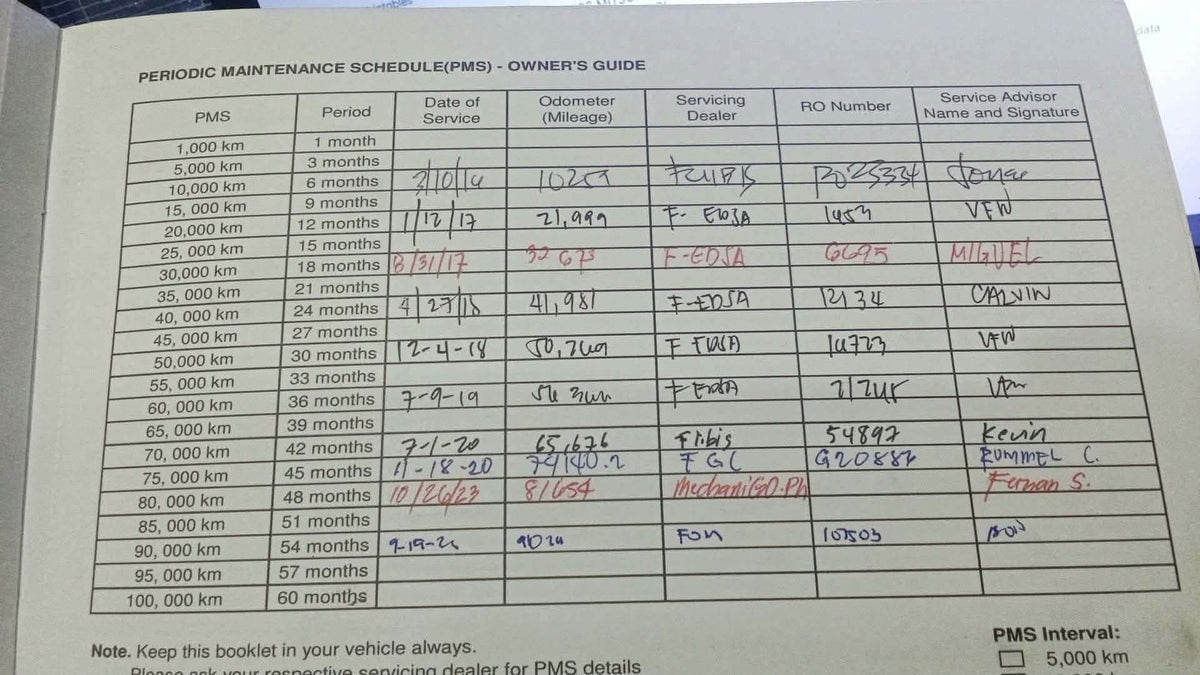 PERIODIC MAINTENANCE SCHEDULE(PMS) - OWNER'S GUIDE
PMS Period Date of Service Odometer (Mileage) Servicing Dealer RO Number Service Advisor Name and Signature
1,000 km 1 month
5,000 km 3 months
10,000 km 6 months 3/10/16 10259
15, 000 km 9 months
20,000 km 12 months 1/12/17 21,999 F- EDSA 1453 VFW
25, 000 km 15 months
30,000 km 18 months 8/31/17 32 673 F-EDSA 6695 MIGUEL
35, 000 km 21 months
40, 000 km 24 months 4/27/18 41,981 F-EDSA 12134 CALVIN
45, 000 km 27 months
50,000 km 30 months 12-4-18 F EDSA 14723 VFW
55, 000 km 33 months
60, 000 km 36 months 7-9-19 F EDSA
65, 000 km 39 months
70, 000 km 42 months 7-1-20 65,676 Flibis 54897 Kevin
75, 000 km 45 months 11-18-20 74140.2 FGC G20882 RUMMEL C.
80, 000 km 48 months 10/26/23 81654 MechaniGO.Ph Fernan S.
85, 000 km 51 months
90, 000 km 54 months 107503
95, 000 km 57 months
100, 000 km 60 months
Note. Keep this booklet in your vehicle always.
Please ask your respective servicing dealer for PMS details
PMS Interval:
5,000 km